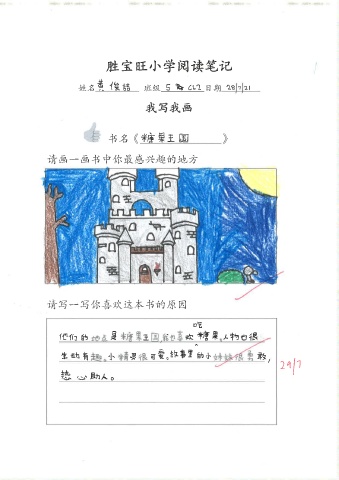 胜宝旺小学阅读笔记
姓名 黄俊 班级 5 CL2 日期 28/7/21
我写我画
书名《 糖果王国 》
请画一画书中你最感兴趣的地方
请写一写你喜欢这本书的原因
吃
他们的地点是糖果王国 我也喜欢糖果。人物也很
生动有趣。小精灵很可爱。故事里的小妹妹很勇敢,
热心助人。
29/7